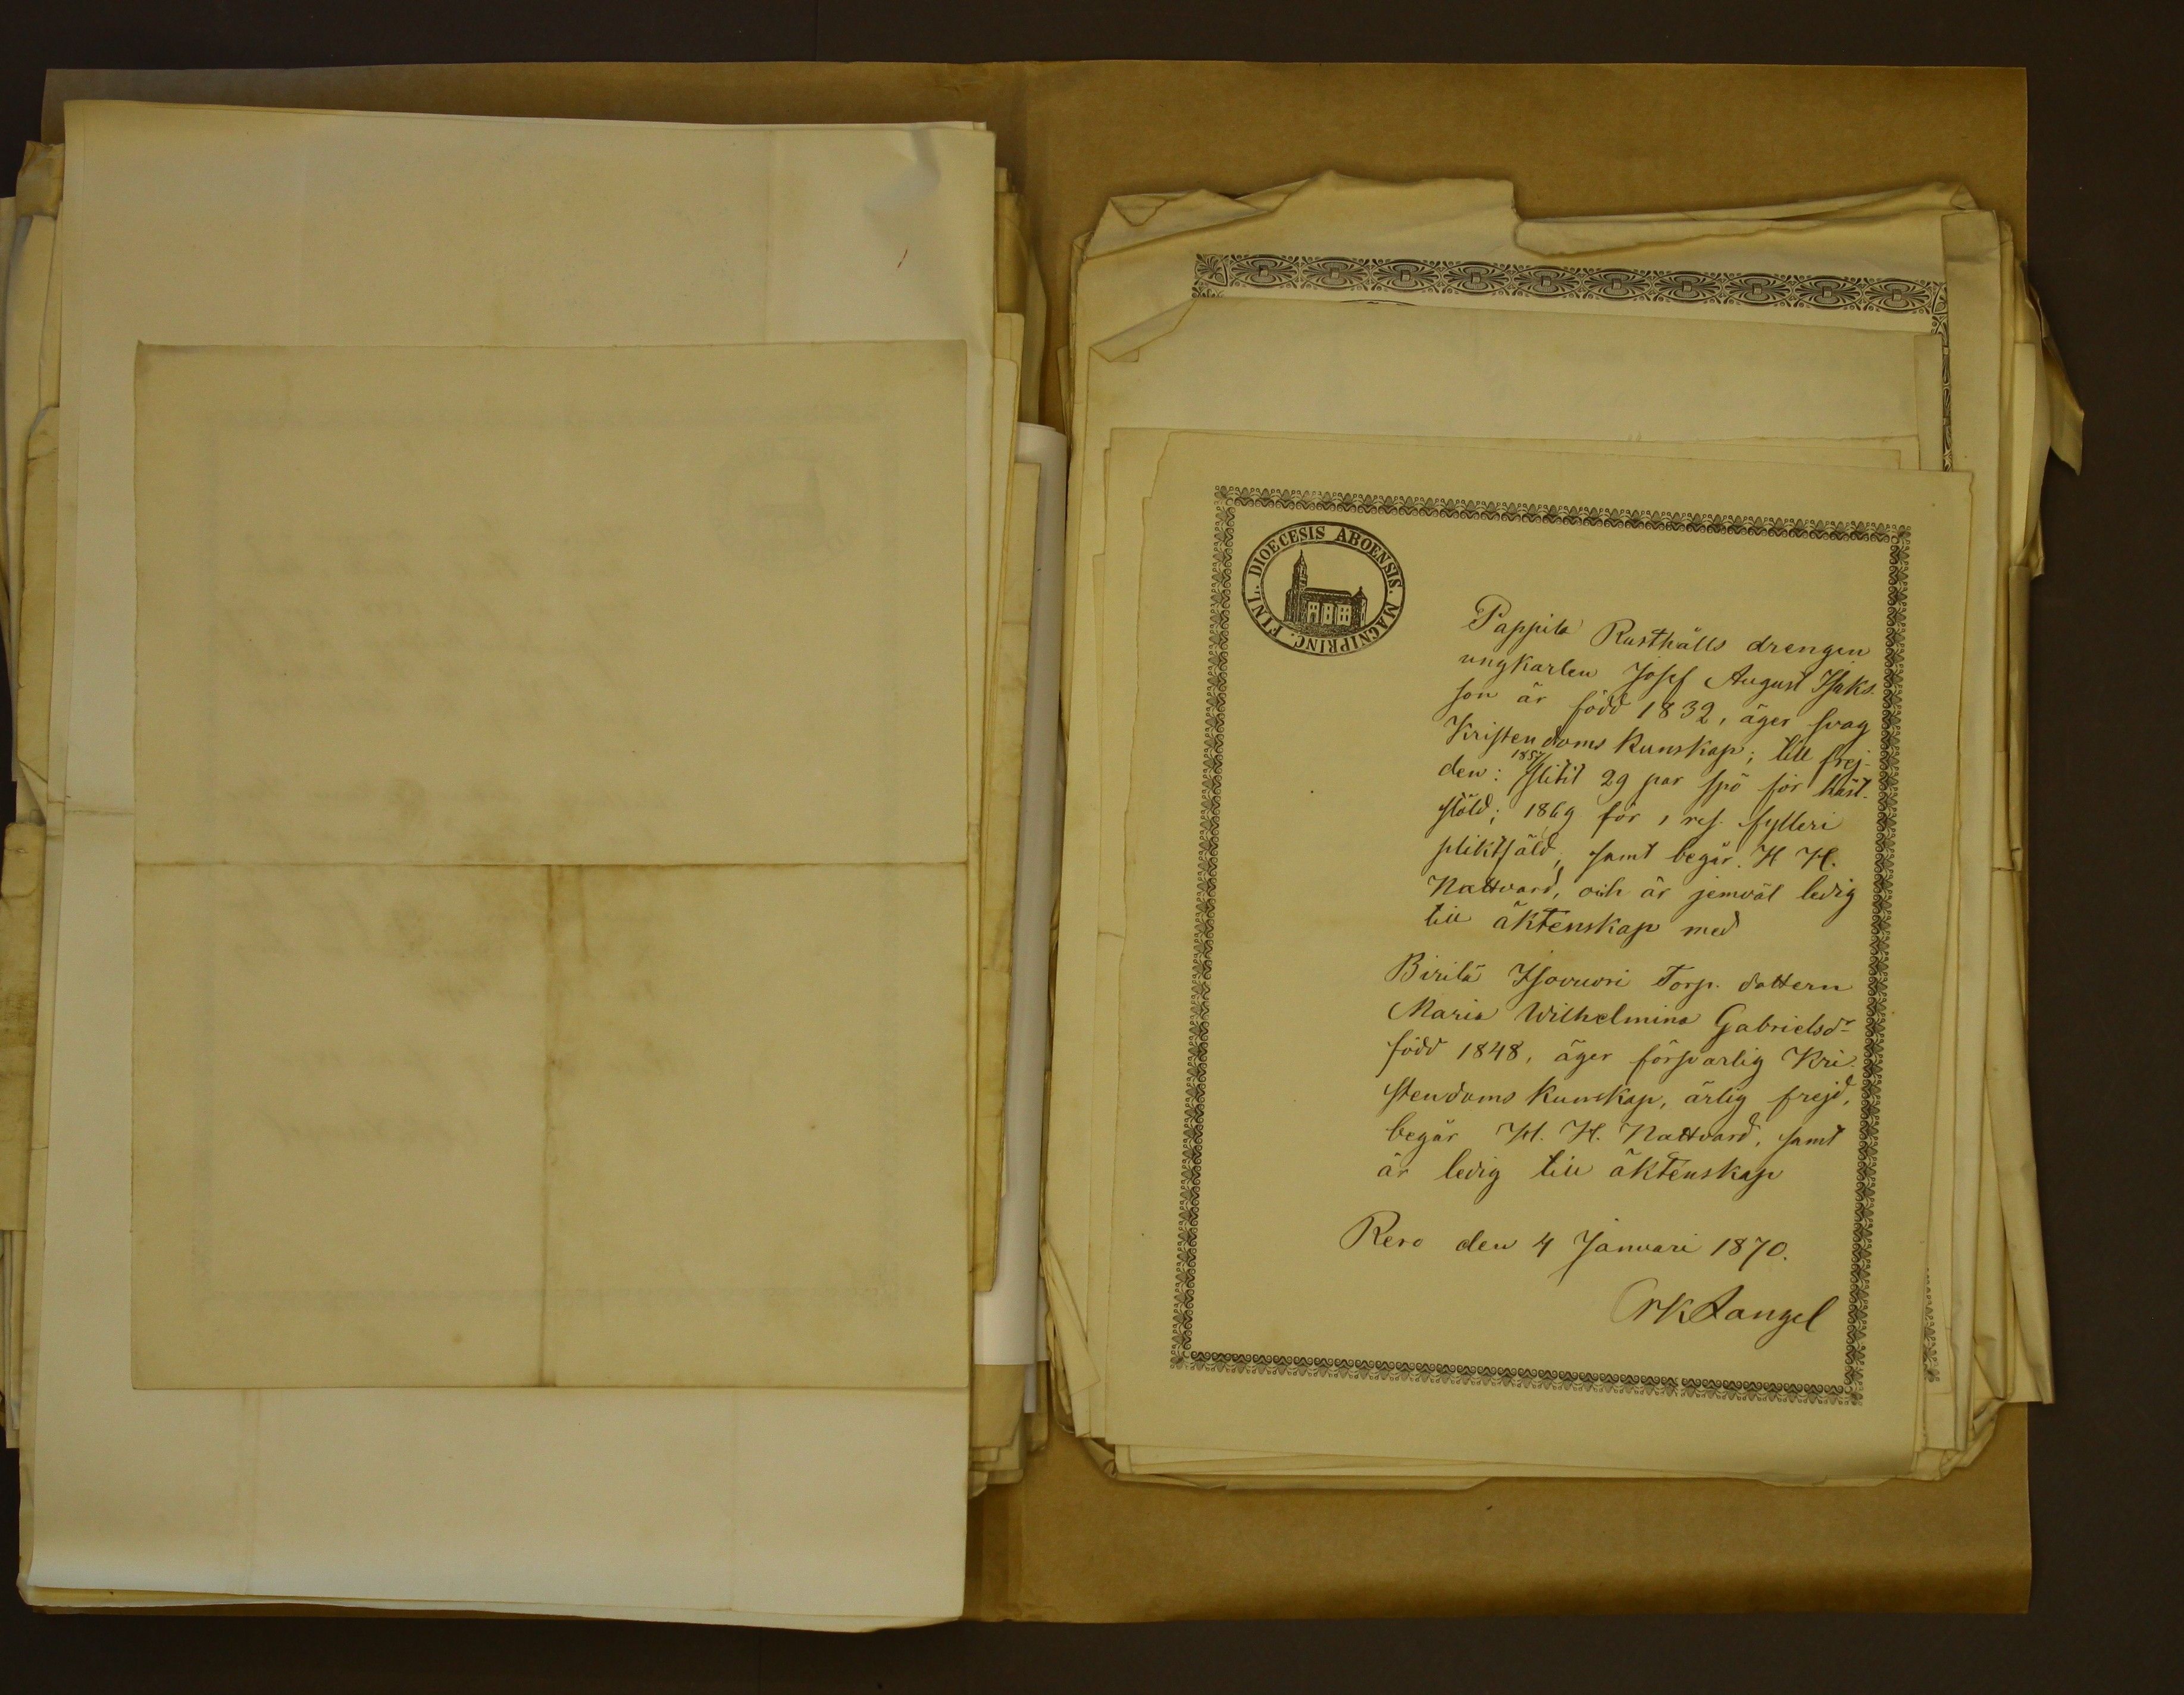 DIOECESIS ABOENSIS. MAGNI PRINC. FINL.
Pappila Rusthålls drengen
ungkarlen Josef August Isaks-
son är född 1832, äger svag
Kristendoms kunskap; till frej-
den: 1857 slitit 29 par spö för häst-
stöld; 1869 för 1 res. fylleri
pliktfäld, samt begår H. H.
Nattvard, och är jemväl ledig
till äktenskap med
Birilä Isovuori Torp. dottern
Maria Wilhelmina Gabrielsdr
född 1848, äger försvarlig Kri-
stendoms kunskap, ärlig frejd,
begår H. H. Nattvard, samt
är ledig till äktenskap
Reso den 4 Januari 1870.